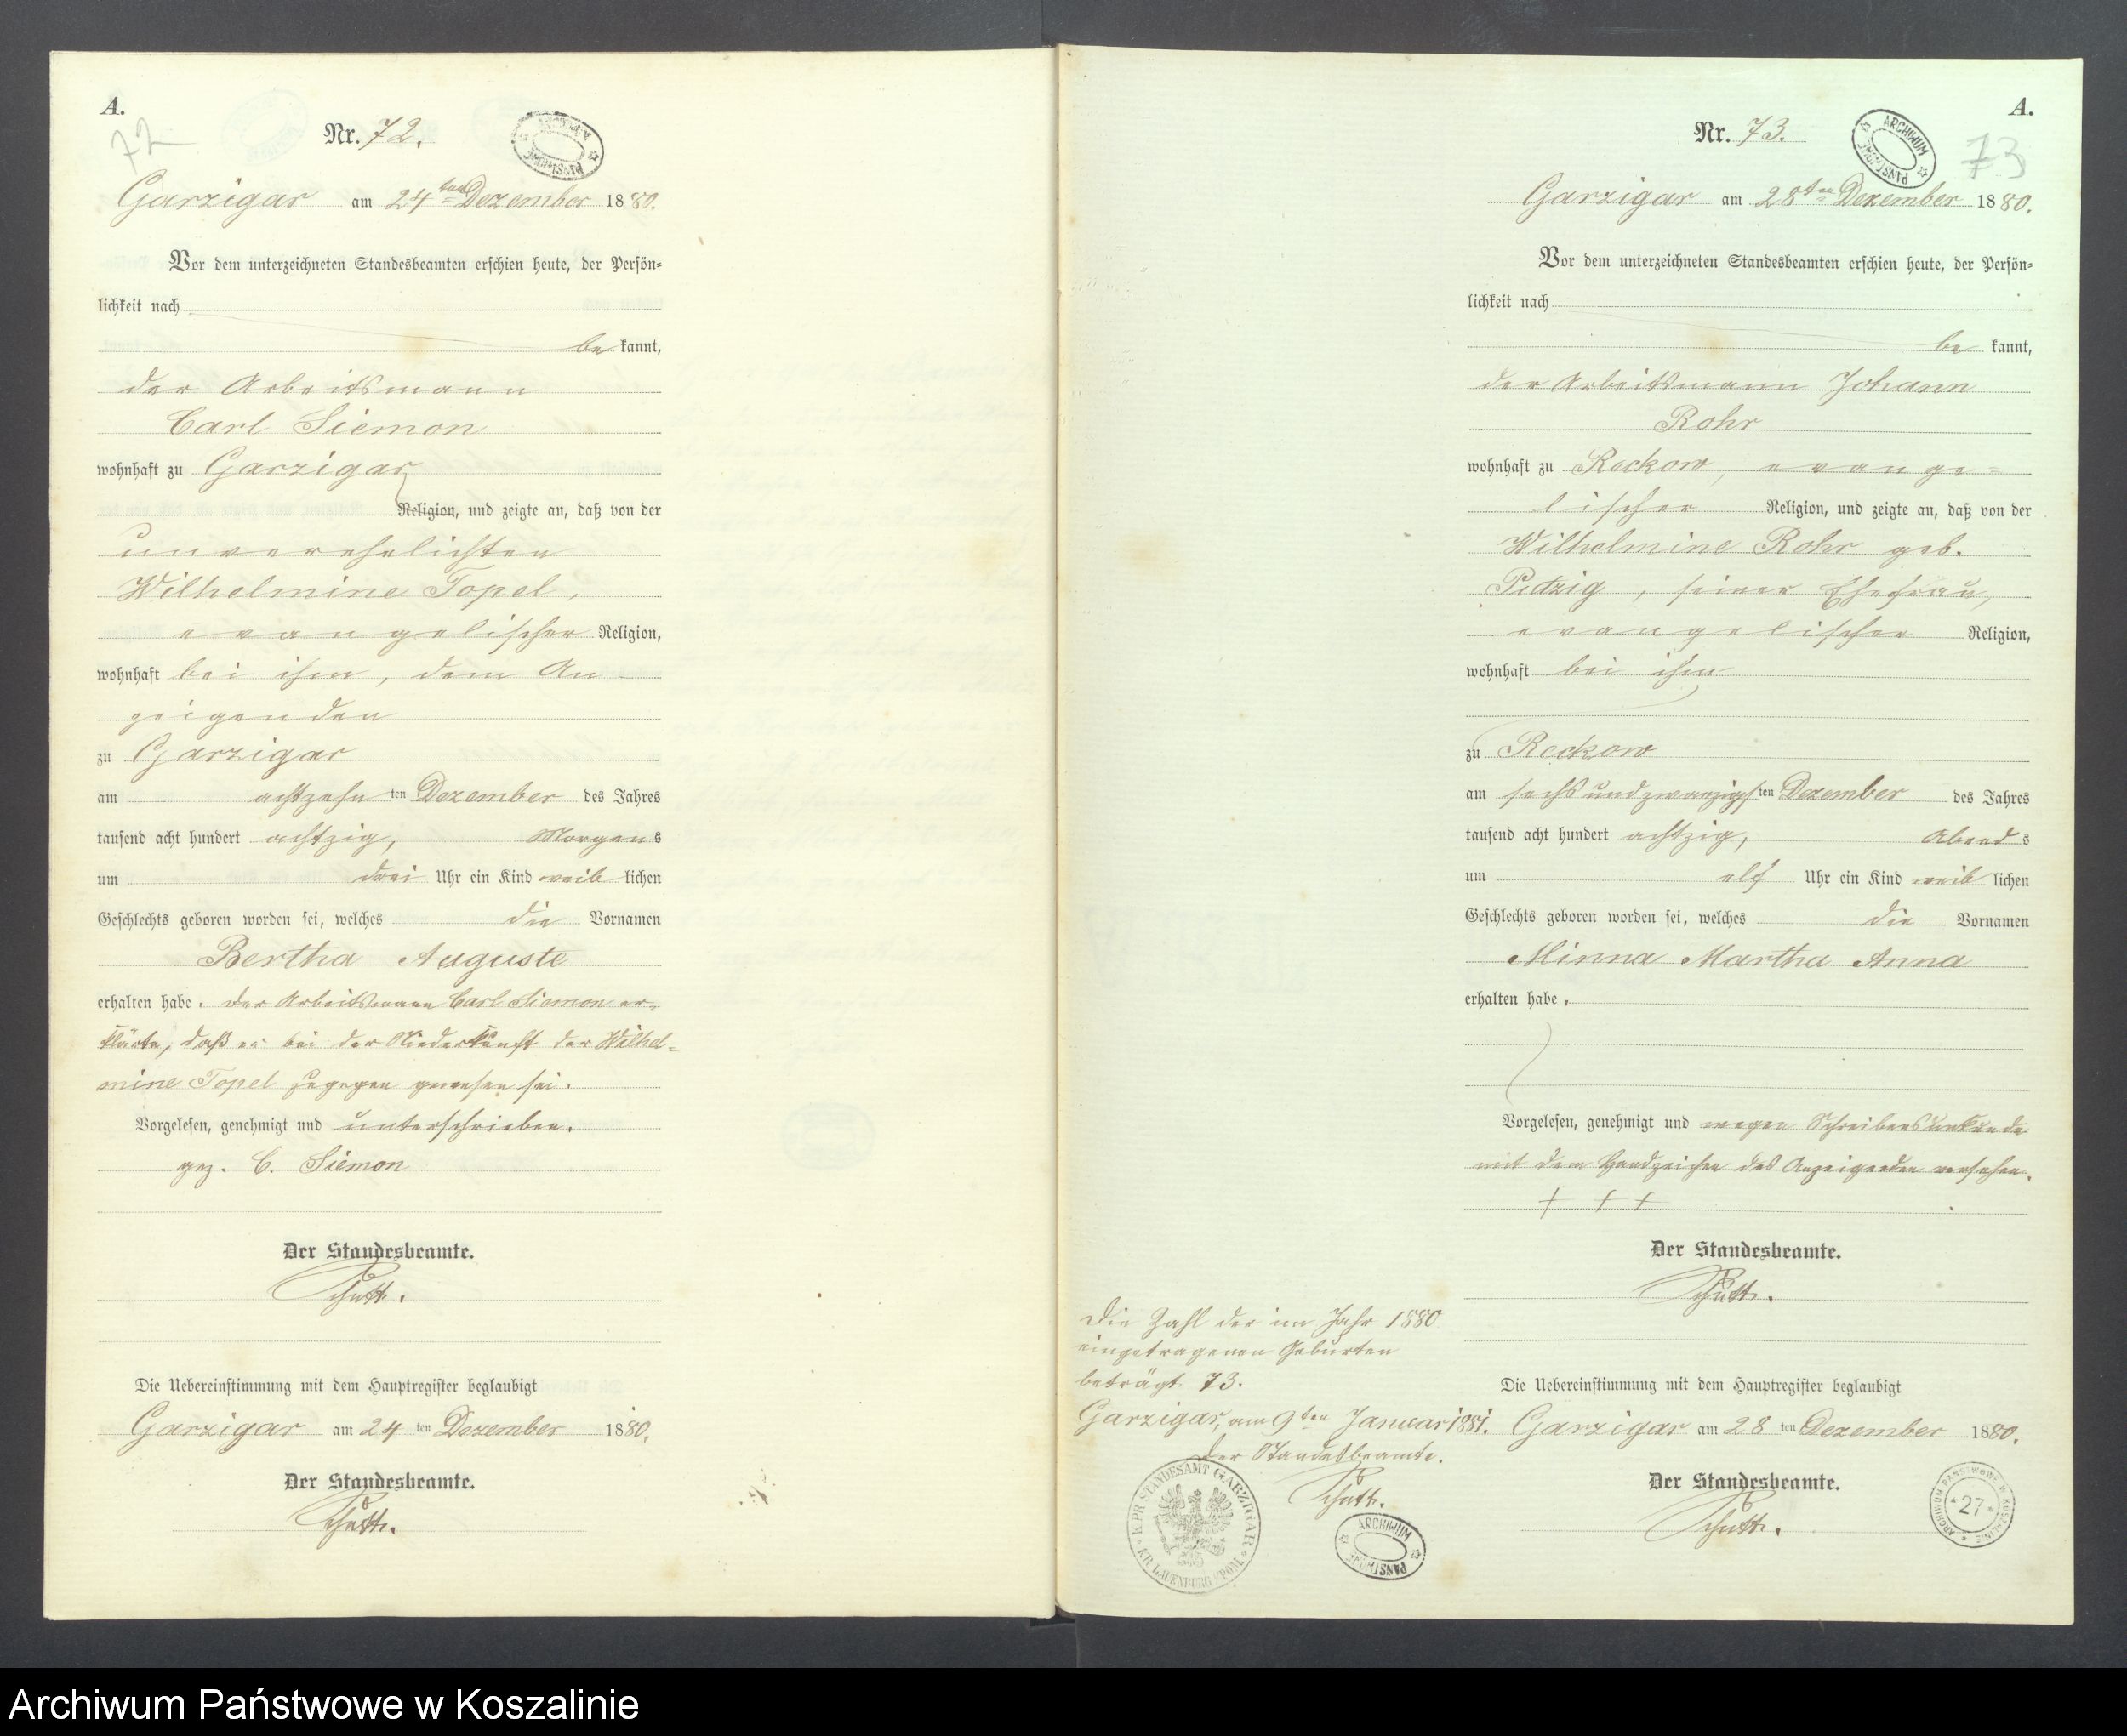 A.
72
Nr. 72.
ARCHIWUM PAŃSTWOWE
Garzigar am 24ten Dezember 1880.
Vor dem unterzeichneten Standesbeamten erschien heute, der Persön-
lichkeit nach
be kannt,
der Arbeitsmann
Carl Siemon
wohnhaft zu Garzigar
Religion, und zeigte an, daß von der
unverehelichten
Wilhelmine Topel,
evangelischer Religion,
wohnhaft bei ihm, dem An
zeigenden
zu Garzigar
am achtzehn ten Dezember des Jahres
tausend acht hundert achtzig, Morgens
um drei Uhr ein Kind weib lichen
Geschlechts geboren worden sei, welches die Vornamen
Bertha Auguste
erhalten habe. Der Arbeitsmann Carl Siemon er-
klärte, daß er bei der Niederkunft der Wilhel-
mine Topel zugegen gewesen sei.
Vorgelesen, genehmigt und unterschrieben.
gez. C. Siemon
Der Standesbeamte.
Schütt.
Die Uebereinstimmung mit dem Hauptregister beglaubigt
Garzigar am 24 ten Dezember 1880.
Der Standesbeamte.
Schütt.
A.
73
Nr. 73.
ARCHIWUM PAŃSTWOWE
Garzigar am 28ten Dezember 1880.
Vor dem unterzeichneten Standesbeamten erschien heute, der Persön-
lichkeit nach
be kannt,
der Arbeitsmann Johann
Rohr
wohnhaft zu Reckow, evange-
lischer Religion, und zeigte an, daß von der
Wilhelmine Rohr geb.
Putzig, seiner Ehefrau,
evangelischer Religion,
wohnhaft bei ihm
zu Reckow
am sechsundzwanzigsten Dezember des Jahres
tausend acht hundert achtzig, Abends
um elf Uhr ein Kind weib lichen
Geschlechts geboren worden sei, welches die Vornamen
Minna Martha Anna
erhalten habe.
Vorgelesen, genehmigt und wegen Schreibensunkunde
mit dem Handzeichen des Anzeigenden versehen.
+ + +
Der Standesbeamte.
Schütt.
Die Uebereinstimmung mit dem Hauptregister beglaubigt
Garzigar am 28 ten Dezember 1880.
Der Standesbeamte.
Schütt.
Die Zahl der im Jahr 1880
eingetragenen Geburten
beträgt 73.
Garzigar, am 9ten Januar 1881.
Der Standesbeamte.
Schütt.
K. PR. STANDESAMT GARZIGAR KR. LAUENBURG I/POM.
ARCHIWUM PAŃSTWOWE
ARCHIWUM PAŃSTWOWE W KOSZALINIE * 27 *
Archiwum Państwowe w Koszalinie